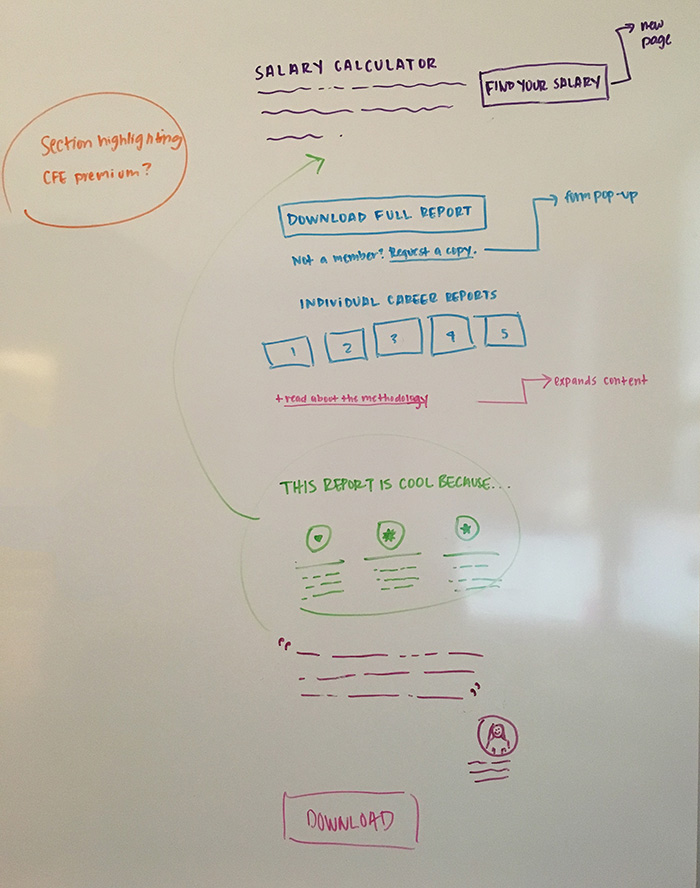 new
page
SALARY CALCULATOR
FIND YOUR SALARY
Section highlighting
CFE premium?
DOWNLOAD FULL REPORT
form pop-up
Not a member? Request a copy.
INDIVIDUAL CAREER REPORTS
1 2 3 4 5
+ read about the methodology
expands content
THIS REPORT IS COOL BECAUSE...
DOWNLOAD